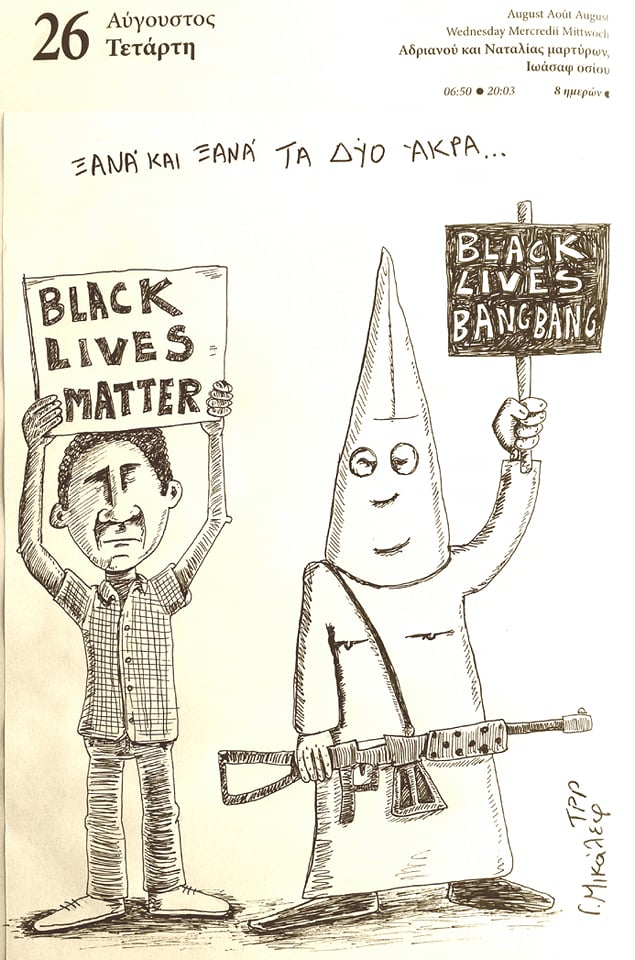 26
Αύγουστος
Τετάρτη
August Août August
Wednesday Mercredii Mittwoch
Αδριανού και Ναταλίας μαρτύρων,
Ιωάσαφ οσίου
06:50 ● 20:03 8 ημερών
ΞΑΝΆ ΚΑΙ ΞΑΝΆ ΤΑ ΔΎΟ ΆΚΡΑ...
BLACK
LIVES
MATTER
BLACK
LIVES
BANG BANG
Γ. Μικάλεφ
TPP